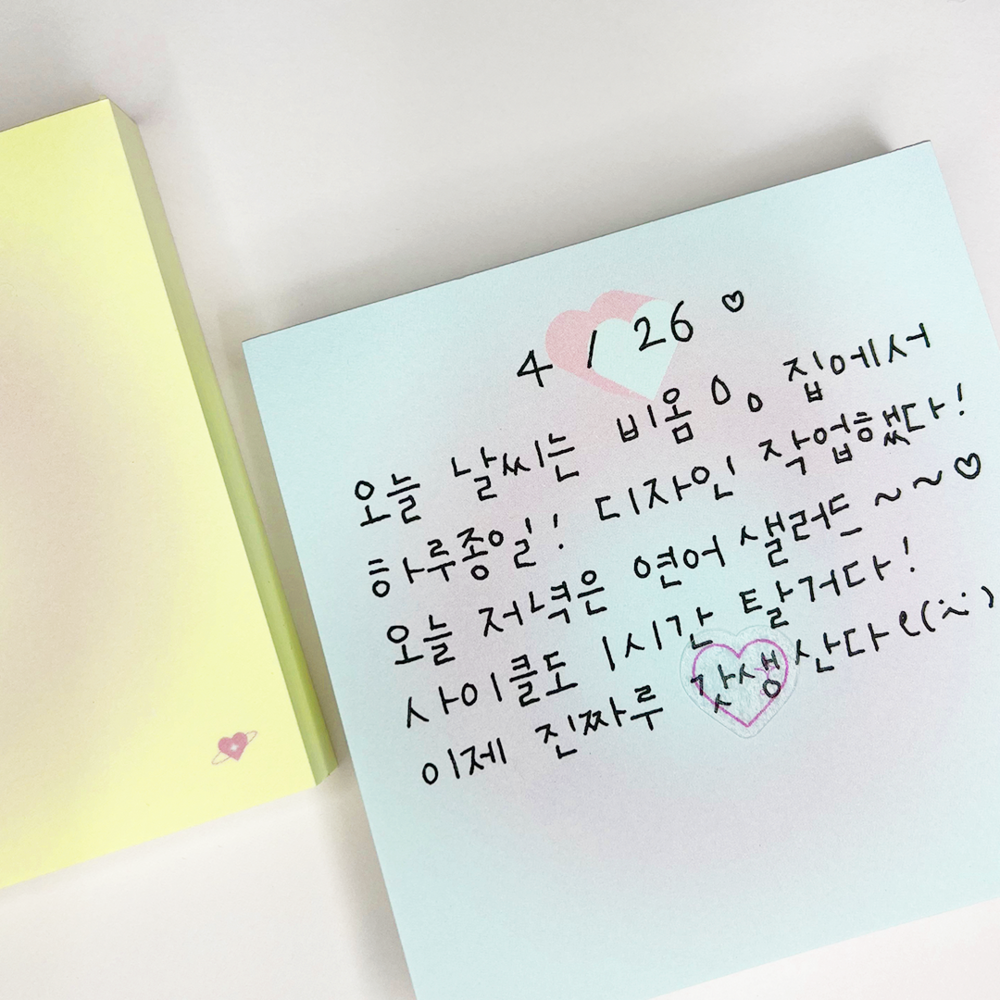 4 / 26 ♡
오늘 날씨는 비옴 집에서
하루종일! 디자인 작업했다!
오늘 저녁은 연어 샐러드 ~~♡
사이클도 1시간 탈거다!
이제 진짜루 갓생 산다